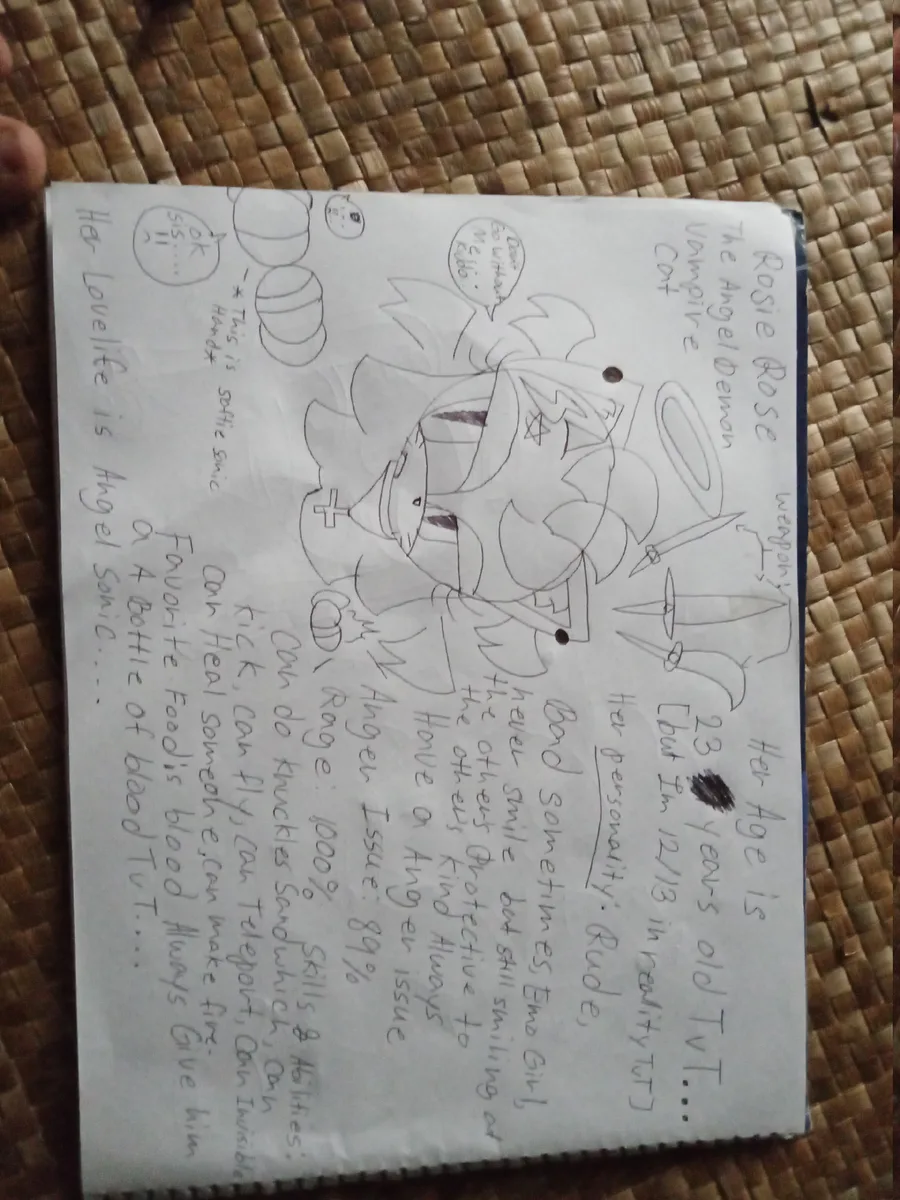 Rosie Rose
The Angel Demon
Vampire
Cat
weapons
Her Age is
23 years old TvT...
[but Im 12/13 in reality TvT]
Her personarity: Rude,
Bad sometimes, Emo Girl,
never smile but still smiling at
the others Protective to
the others kind Always
Have a Anger issue
Anger Issue: 89%
Rage: 1000%
Skills & Abilities:
can do knuckles Sandwhich, can
kick, can fly, can Teleport, can Invisible
can Heal someone, can make fire.
Favorite Food is blood Always Give him
a A Bottle of blood TvT...
Go without
Me...
* This is softie sonic
Hand*
ok
sis....
Her Lovelife is Angel Sonic....